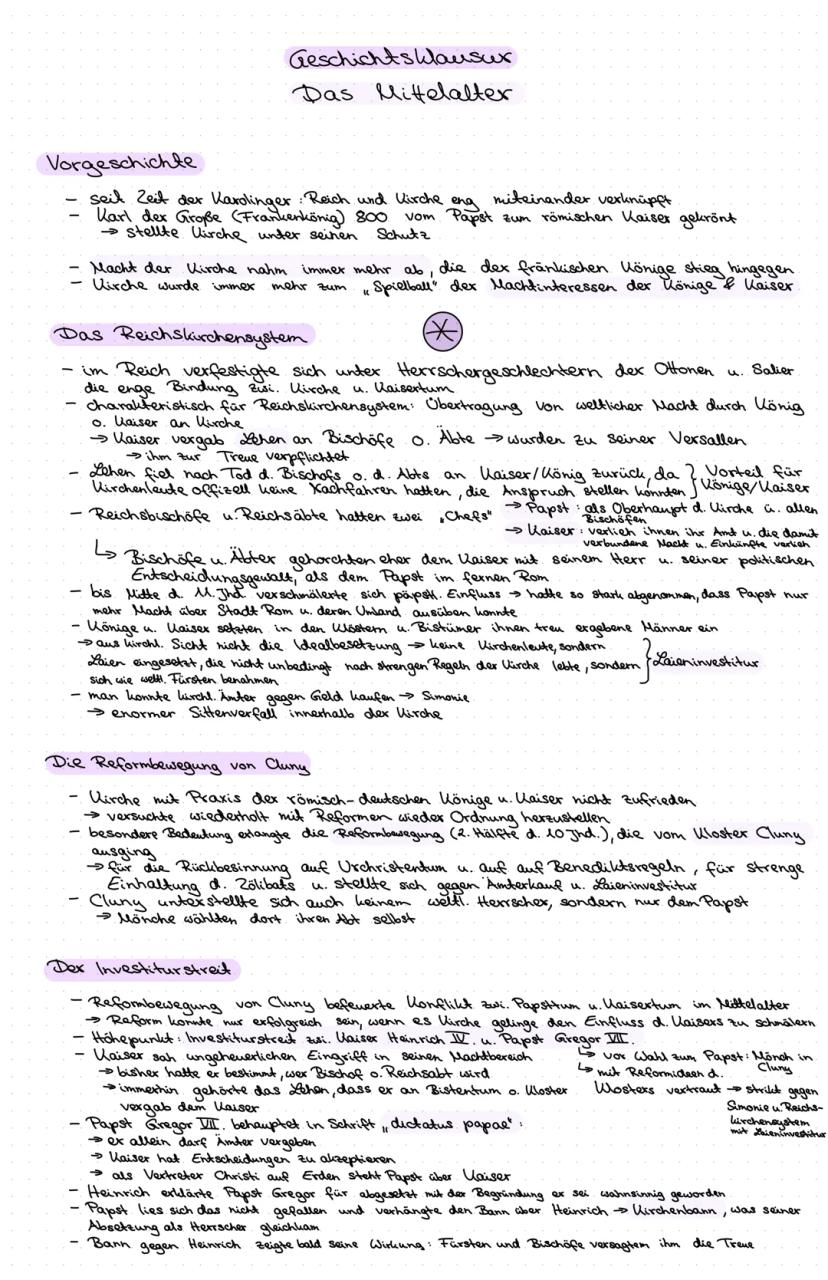 Geschichtsklausur
Das Mittelalter
Vorgeschichte
- seit Zeit der Karolinger: Reich und Kirche eng miteinander verknüpft
- Karl der Große (Frankenkönig) 800 vom Papst zum römischen Kaiser gekrönt
→ stellte Kirche unter seinen Schutz
- Macht der Kirche nahm immer mehr ab, die der fränkischen Könige stieg hingegen
- Kirche wurde immer mehr zum „Spielball" der Machtinteressen der Könige & Kaiser
Das Reichskirchensystem
- im Reich verfestigte sich unter Herrschergeschlechtern der Ottonen u. Salier
die enge Bindung zwi. Kirche u. Kaisertum
- charakteristisch für Reichskirchensystem: Übertragung von weltlicher Macht durch König
o. Kaiser an Kirche
→ Kaiser vergab Lehen an Bischöfe o. Äbte → wurden zu seiner Versallen
→ ihm zur Treue verpflichtet
- Lehen fiel nach Tod d. Bischofs o. d. Abts an Kaiser/König zurück, da } Vorteil für
Kirchenleute offizell keine Nachfahren hatten, die Anspruch stellen konnten } Könige/Kaiser
- Reichsbischöfe u. Reichsäbte hatten zwei „Chefs" → Papst: als Oberhaupt d. Kirche ü. allen
Bischöfen
→ Kaiser: verlieh ihnen ihr Amt u. die damit
verbundene Macht u. Einkünfte verlieh
↳ Bischöfe u. Äbter gehorchten eher dem Kaiser mit seinem Herr u. seiner politischen
Entscheidungsgewalt, als dem Papst im fernen Rom
- bis Mitte d. 11. Jhd. verschmälerte sich päpstl. Einfluss → hatte so stark abgenommen, dass Papst nur
mehr Macht über Stadt Rom u. deren Umland ausüben konnte
- Könige u. Kaiser setzten in den Klöstern u. Bistümer ihnen treu ergebene Männer ein
→ aus kirchl. Sicht nicht die Idealbesetzung → keine Kirchenleute, sondern
Laien eingesetzt, die nicht unbedingt nach strengen Regeln der Kirche lebte, sondern } Laieninvestitur
sich wie weltl. Fürsten benahmen
- man konnte kirchl. Ämter gegen Geld kaufen → Simonie
→ enormer Sittenverfall innerhalb der Kirche
Die Reformbewegung von Cluny
- Kirche mit Praxis der römisch-deutschen Könige u. Kaiser nicht zufrieden
→ versuchte wiederholt mit Reformen wieder Ordnung herzustellen
- besondere Bedeutung erlangte die Reformbewegung (2. Hälfte d. 10 Jhd.), die vom Kloster Cluny
ausging
→ für die Rückbesinnung auf Urchristentum u. auf auf Benediktsregeln, für strenge
Einhaltung d. Zölibats u. stellte sich gegen Ämterkauf u. Laieninvestitur
- Cluny unterstellte sich auch keinem weltl. Herrscher, sondern nur dem Papst
→ Mönche wählten dort ihren Abt selbst
Der Investiturstreit
- Reformbewegung von Cluny befeuerte Konflikt zwi. Papsttum u. Kaisertum im Mittelalter
→ Reform konnte nur erfolgreich sein, wenn es Kirche gelinge den Einfluss d. Kaisers zu schmälern
- Höhepunkt: Investiturstreit zwi. Kaiser Heinrich IV. u. Papst Gregor VII.
- Kaiser sah ungeheuerlichen Eingriff in seinen Machtbereich ↳ vor Wahl zum Papst: Mönch in
Cluny
→ bisher hatte er bestimmt, wer Bischof o. Reichsabt wird ↳ mit Reformideen d.
→ immerhin gehörte das Lehen, dass er an Bistentum o. Kloster Klosters vertraut → strikt gegen
vergab dem Kaiser Simonie u. Reichs-
kirchensystem
mit Laieninvestitur
- Papst Gregor VII. behauptet in Schrift „dictatus papae":
→ er allein darf Ämter vergeben
→ Kaiser hat Entscheidungen zu akzeptieren
→ als Vertreter Christi auf Erden steht Papst über Kaiser
- Heinrich erklärte Papst Gregor für abgesetzt mit der Begründung er sei wahnsinnig geworden
- Papst lies sich das nicht gefallen und verhängte den Bann über Heinrich → Kirchenbann, was seiner
Absetzung als Herrscher gleichkam
- Bann gegen Heinrich zeigte bald seine Wirkung: Fürsten und Bischöfe versagtem ihm die Treue